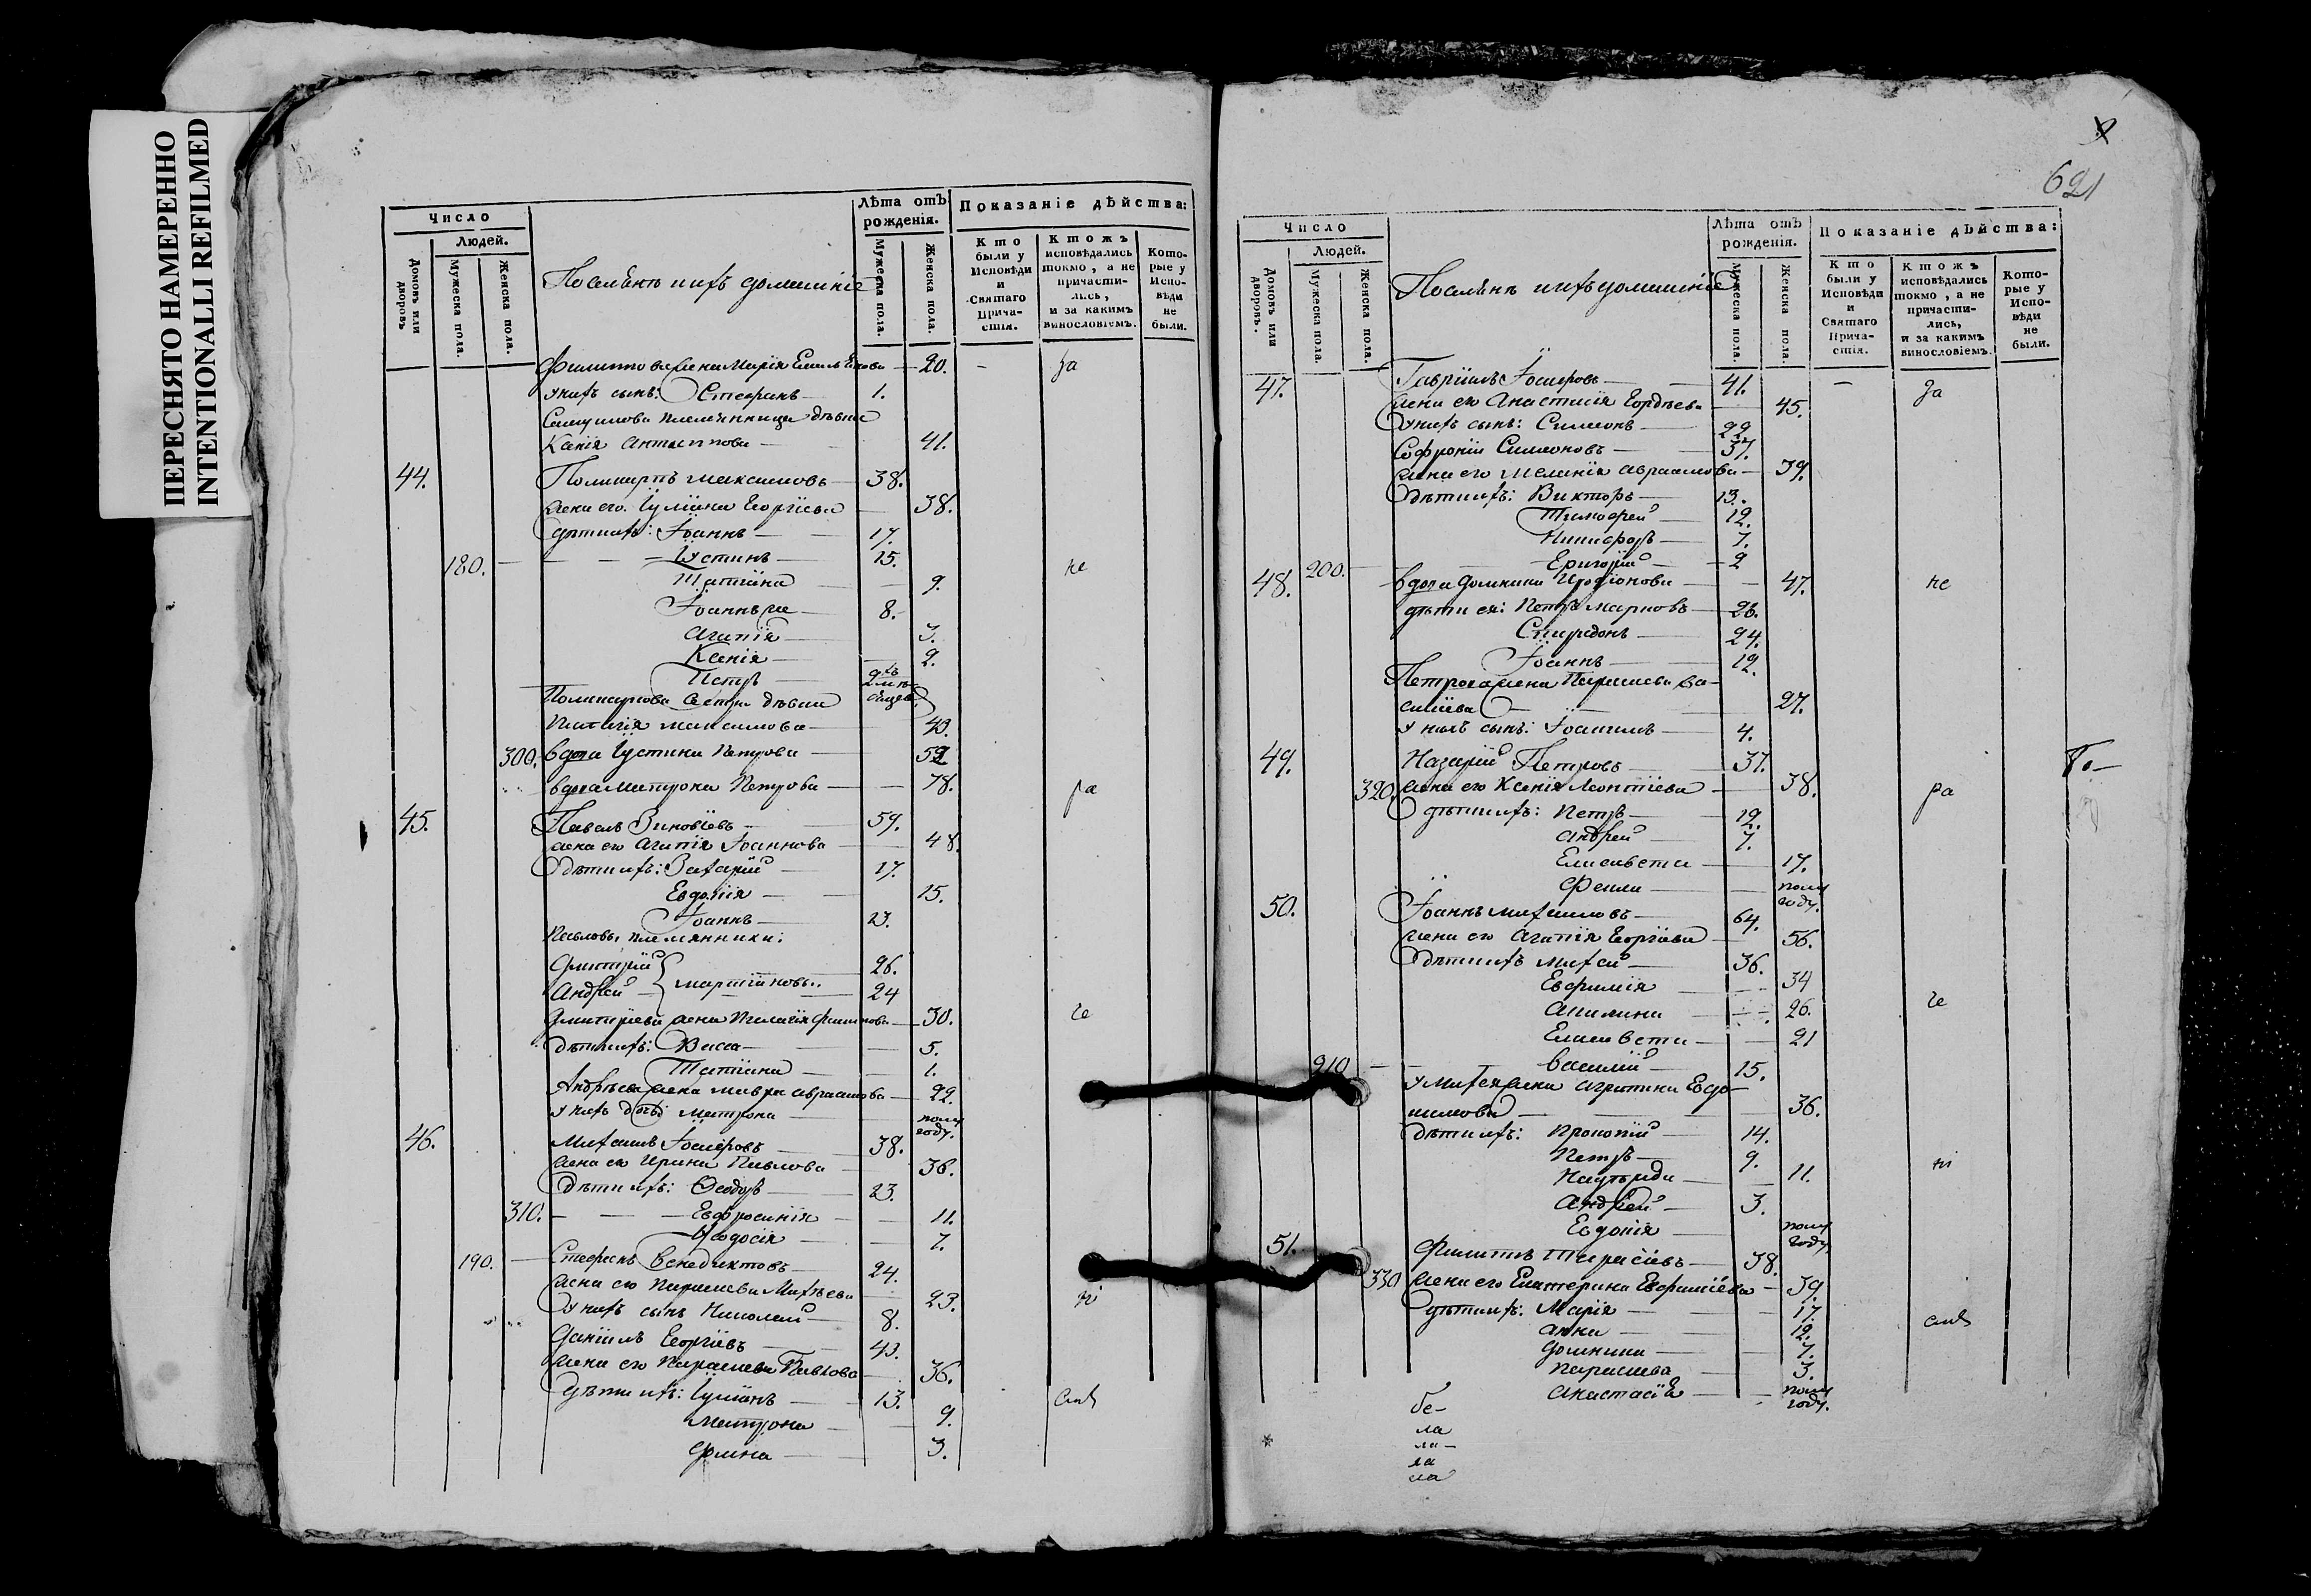 ПЕРЕСНЯТО НАМЕРЕННО
INTENTIONALLI REFILMED
Число
Людей.
Домовъ или дворовъ
Мужеска пола.
Женска пола.
Посяднъ ихъ домашніе
Лѣта отъ рожденія.
Мужеска пола.
Женска пола.
Показаніе дѣйства:
Кто были у Исповѣди и Святаго Прича-стія.
Ктожъ исповѣдались токмо, а не причасти-лись, и за какимъ винословіемъ.
Кото-рые у Испо-вѣди не были.
Филиппова жена Марія 20. за
у нихъ сынъ: Стефанъ 1.
племянница дѣвка
Ксенія Антиппова 41.
44. Поликарпъ Максимовъ 38.
жена его Іуліана Георгіева 38.
дѣти ихъ: Іоаннъ 17.
180. Іустинъ 15. не
Татіана 9.
Іоаннъ же 8.
Агапія 3.
Ксенія 2.
Петръ
Поликарпова сестра дѣвка
Пелагія Максимова 42.
300. вдова Іустина Петрова 52
вдова Матрона Петрова 78. ра
45. Павелъ Зиновіевъ 59.
жена его Агапія Іоаннова 48.
дѣти ихъ: Захарій 17.
Евдокія 15.
Іоаннъ 23.
Павловы племянники:
Димитрій 26.
Андрей Мартиновы 24
Димитріева жена Пелагія 30. че
дѣти ихъ: Васса 5.
Татіана 1.
Андреева жена Мавра Авраамова 22.
у нихъ дочь Матрона полу году.
46. Михаилъ Іосифовъ 38.
жена его Ирина Павлова 36.
дѣти ихъ: Ѳеодоръ 23.
310. Евфросинія 11.
Ѳеодосія 7.
190. Стефанъ Венедиктовъ 24.
жена его Параскева Михѣева 23. ні
у нихъ сынъ Николай 8.
Даніилъ Георгіевъ 43.
жена его Параскева Павлова 36.
дѣти ихъ: Іуліанъ 13. емъ
Матрона 9.
Фаина 3.
621
Число
Людей.
Домовъ или дворовъ.
Мужеска пола.
Женска пола.
Лѣта отъ рожденія.
Мужеска пола.
Женска пола.
Показаніе дѣйства:
Кто были у Исповѣди и Святаго Прича-стія.
Ктожъ исповѣдались токмо, а не причасти-лись, и за какимъ винословіемъ.
Кото-рые у Испо-вѣди не были.
47. Гавріилъ Іосифовъ 41. за
жена его Анастасія Гордѣева 45.
у нихъ сынъ: Симеонъ 22.
Софроній Симеоновъ 37.
жена его Меланія Авраамова 39.
дѣти ихъ: Викторъ 13.
Тимофей 12.
Никифоръ 7.
200. Григорій 2
48. вдова Домника Иродіонова 47. не
дѣти ея: Петръ Марковъ 26.
Спиридонъ 24.
Іоаннъ 12.
Петрова жена Параскева Ва-
силіева 27.
у нихъ сынъ: Іоакимъ 4.
49. Назарій Петровъ 37.
320. жена его Ксенія Леонтіева 38. ра
дѣти ихъ: Петръ 12.
Андрей 7.
Елисавета 17.
Фекла полу году.
50. Іоаннъ Михаиловъ 64.
жена его Агапія Георгіева 56.
дѣти ихъ Михей 36.
Евфимія 34
Акилина 26. че
Елисавета 21
210 Василій 15.
у Михея жена Агрипина Евдо-
кимова 36.
дѣти ихъ: Прокопій 14.
Петръ 9. ні
11.
Андрей 3.
Евдокія полу году
51. Филиппъ Тарасіевъ 38.
330 жена его Екатерина Евфиміева 39.
дѣти ихъ: Марія 17. емъ
Анна 12.
Домника 7.
Параскева 3.
Анастасія полу году.